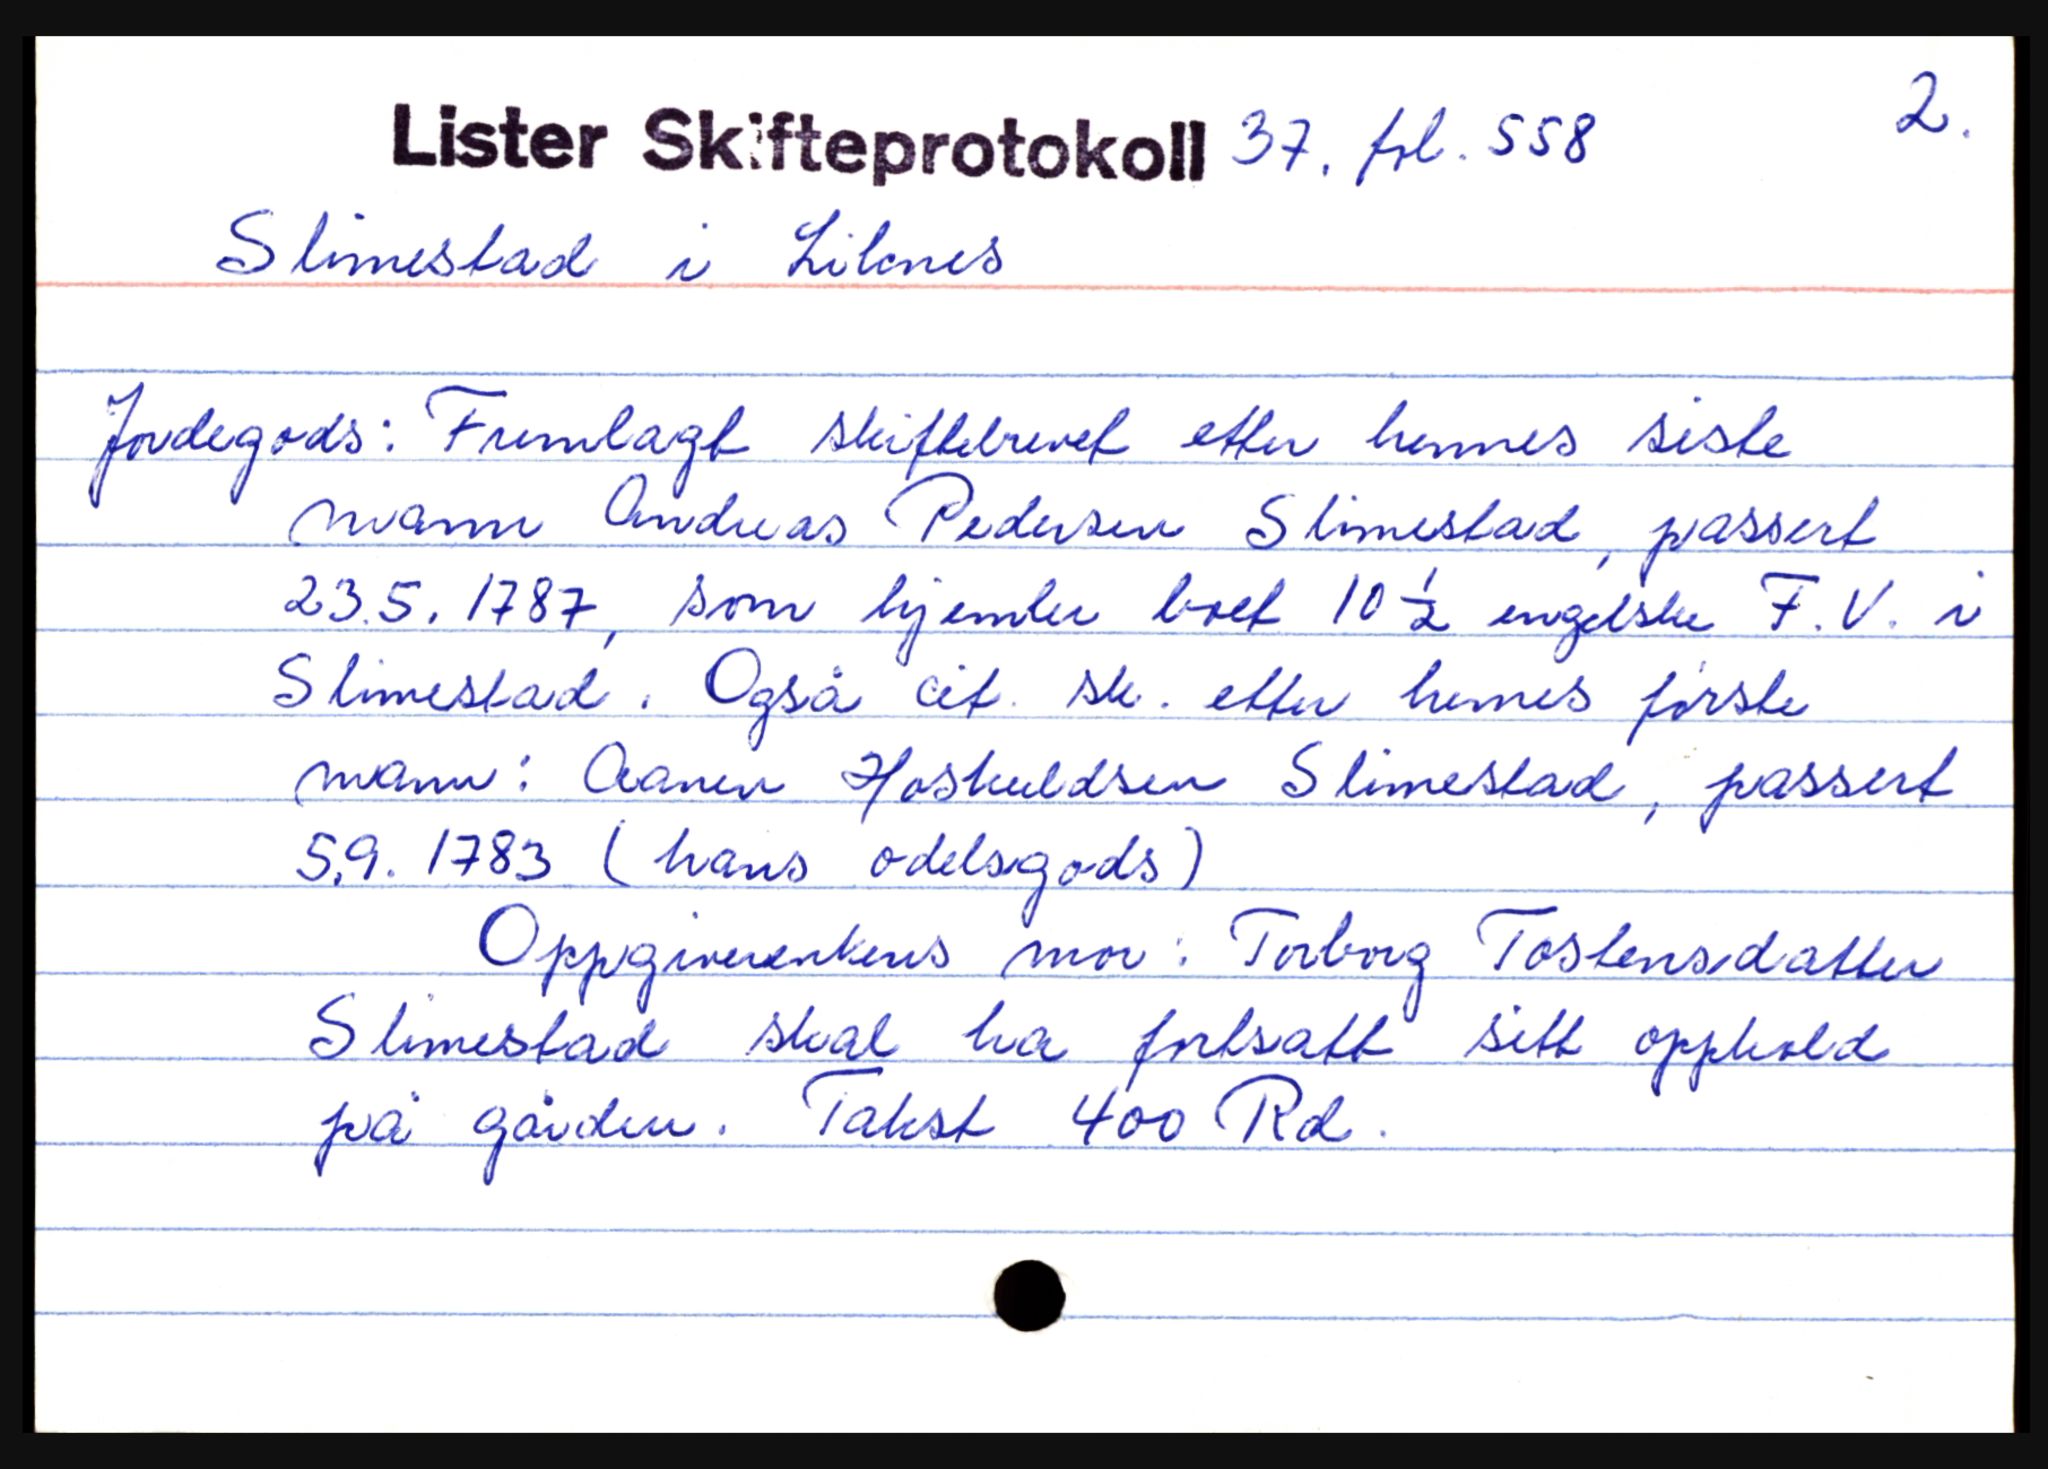 Lister Skifteprotokoll 37. fol. 558 2.
Slimestad i Liknes
Jordegods: Fremlagt skiftebrevet etter hennes siste
mann Andreas Pedersen Slimestad, passert
23.5.1787, som hjemler boet 10 1/2 engelske F.V. i
Slimestad. Også cit. sk. etter hennes første
mann: Aanen Hoskuldsen Slimestad, passert
5.9.1783 (hans odelsgods)
Oppgiverenkens mor: Torborg Tostensdatter
Slimestad skal ha fortsatt sitt opphold
på gården. Takst 400 Rd.